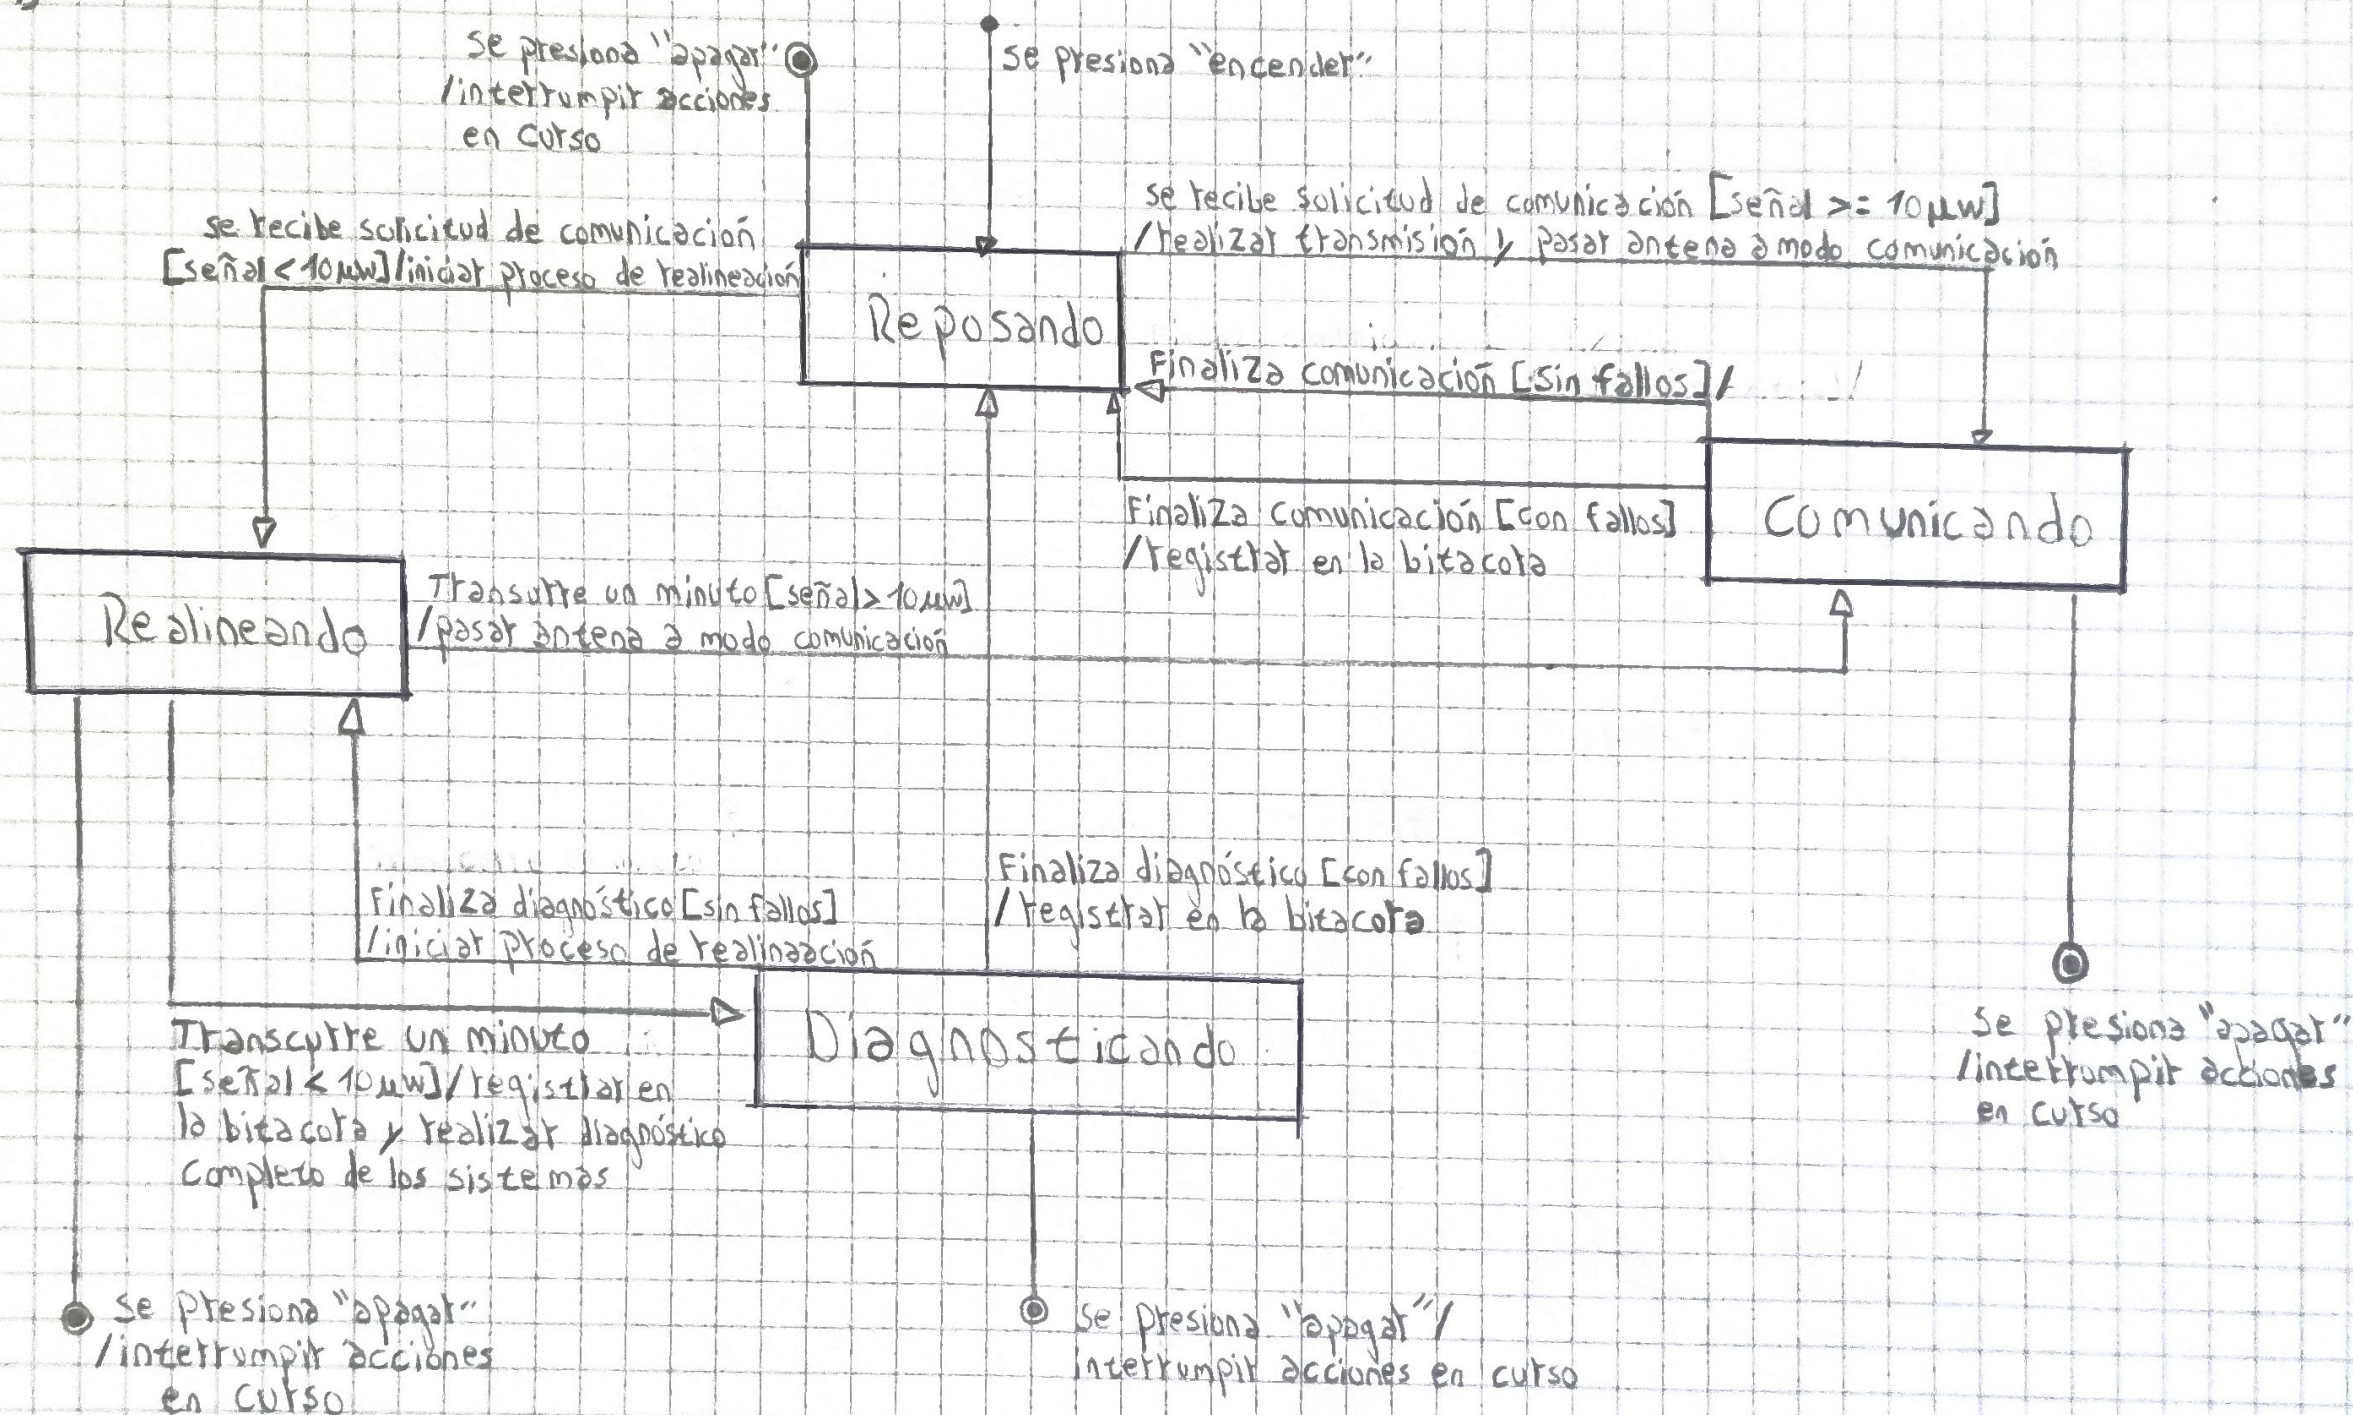 se presiona "apagar"
/interrumpir acciones
en curso
se presiona "encender"
se recibe solicitud de comunicación
[señal < 10 μw]/iniciar proceso de realineación
se recibe solicitud de comunicación [señal >= 10 μw]
/realizar transmisión y pasar antena a modo comunicación
Reposando
Finaliza comunicación [sin fallos]/
Finaliza comunicación [con fallos]
/registrar en la bitacora
Comunicando
Realineando
Transurre un minuto [señal > 10 μw]
/pasar antena a modo comunicación
Finaliza diagnóstico [sin fallos]
/iniciar proceso de realinaación
Finaliza diagnóstico [con fallos]
/registrar en la bitacora
Diagnosticando
Transcurre un minuto
[señal < 10 μw]/registrar en
la bitacora y realizar diagnóstico
completo de los sistemas
se presiona "apagar"
/interrumpir acciones
en curso
se presiona "apagar"
/interrumpir acciones
en curso
se presiona "apagar"/
interrumpir acciones en curso